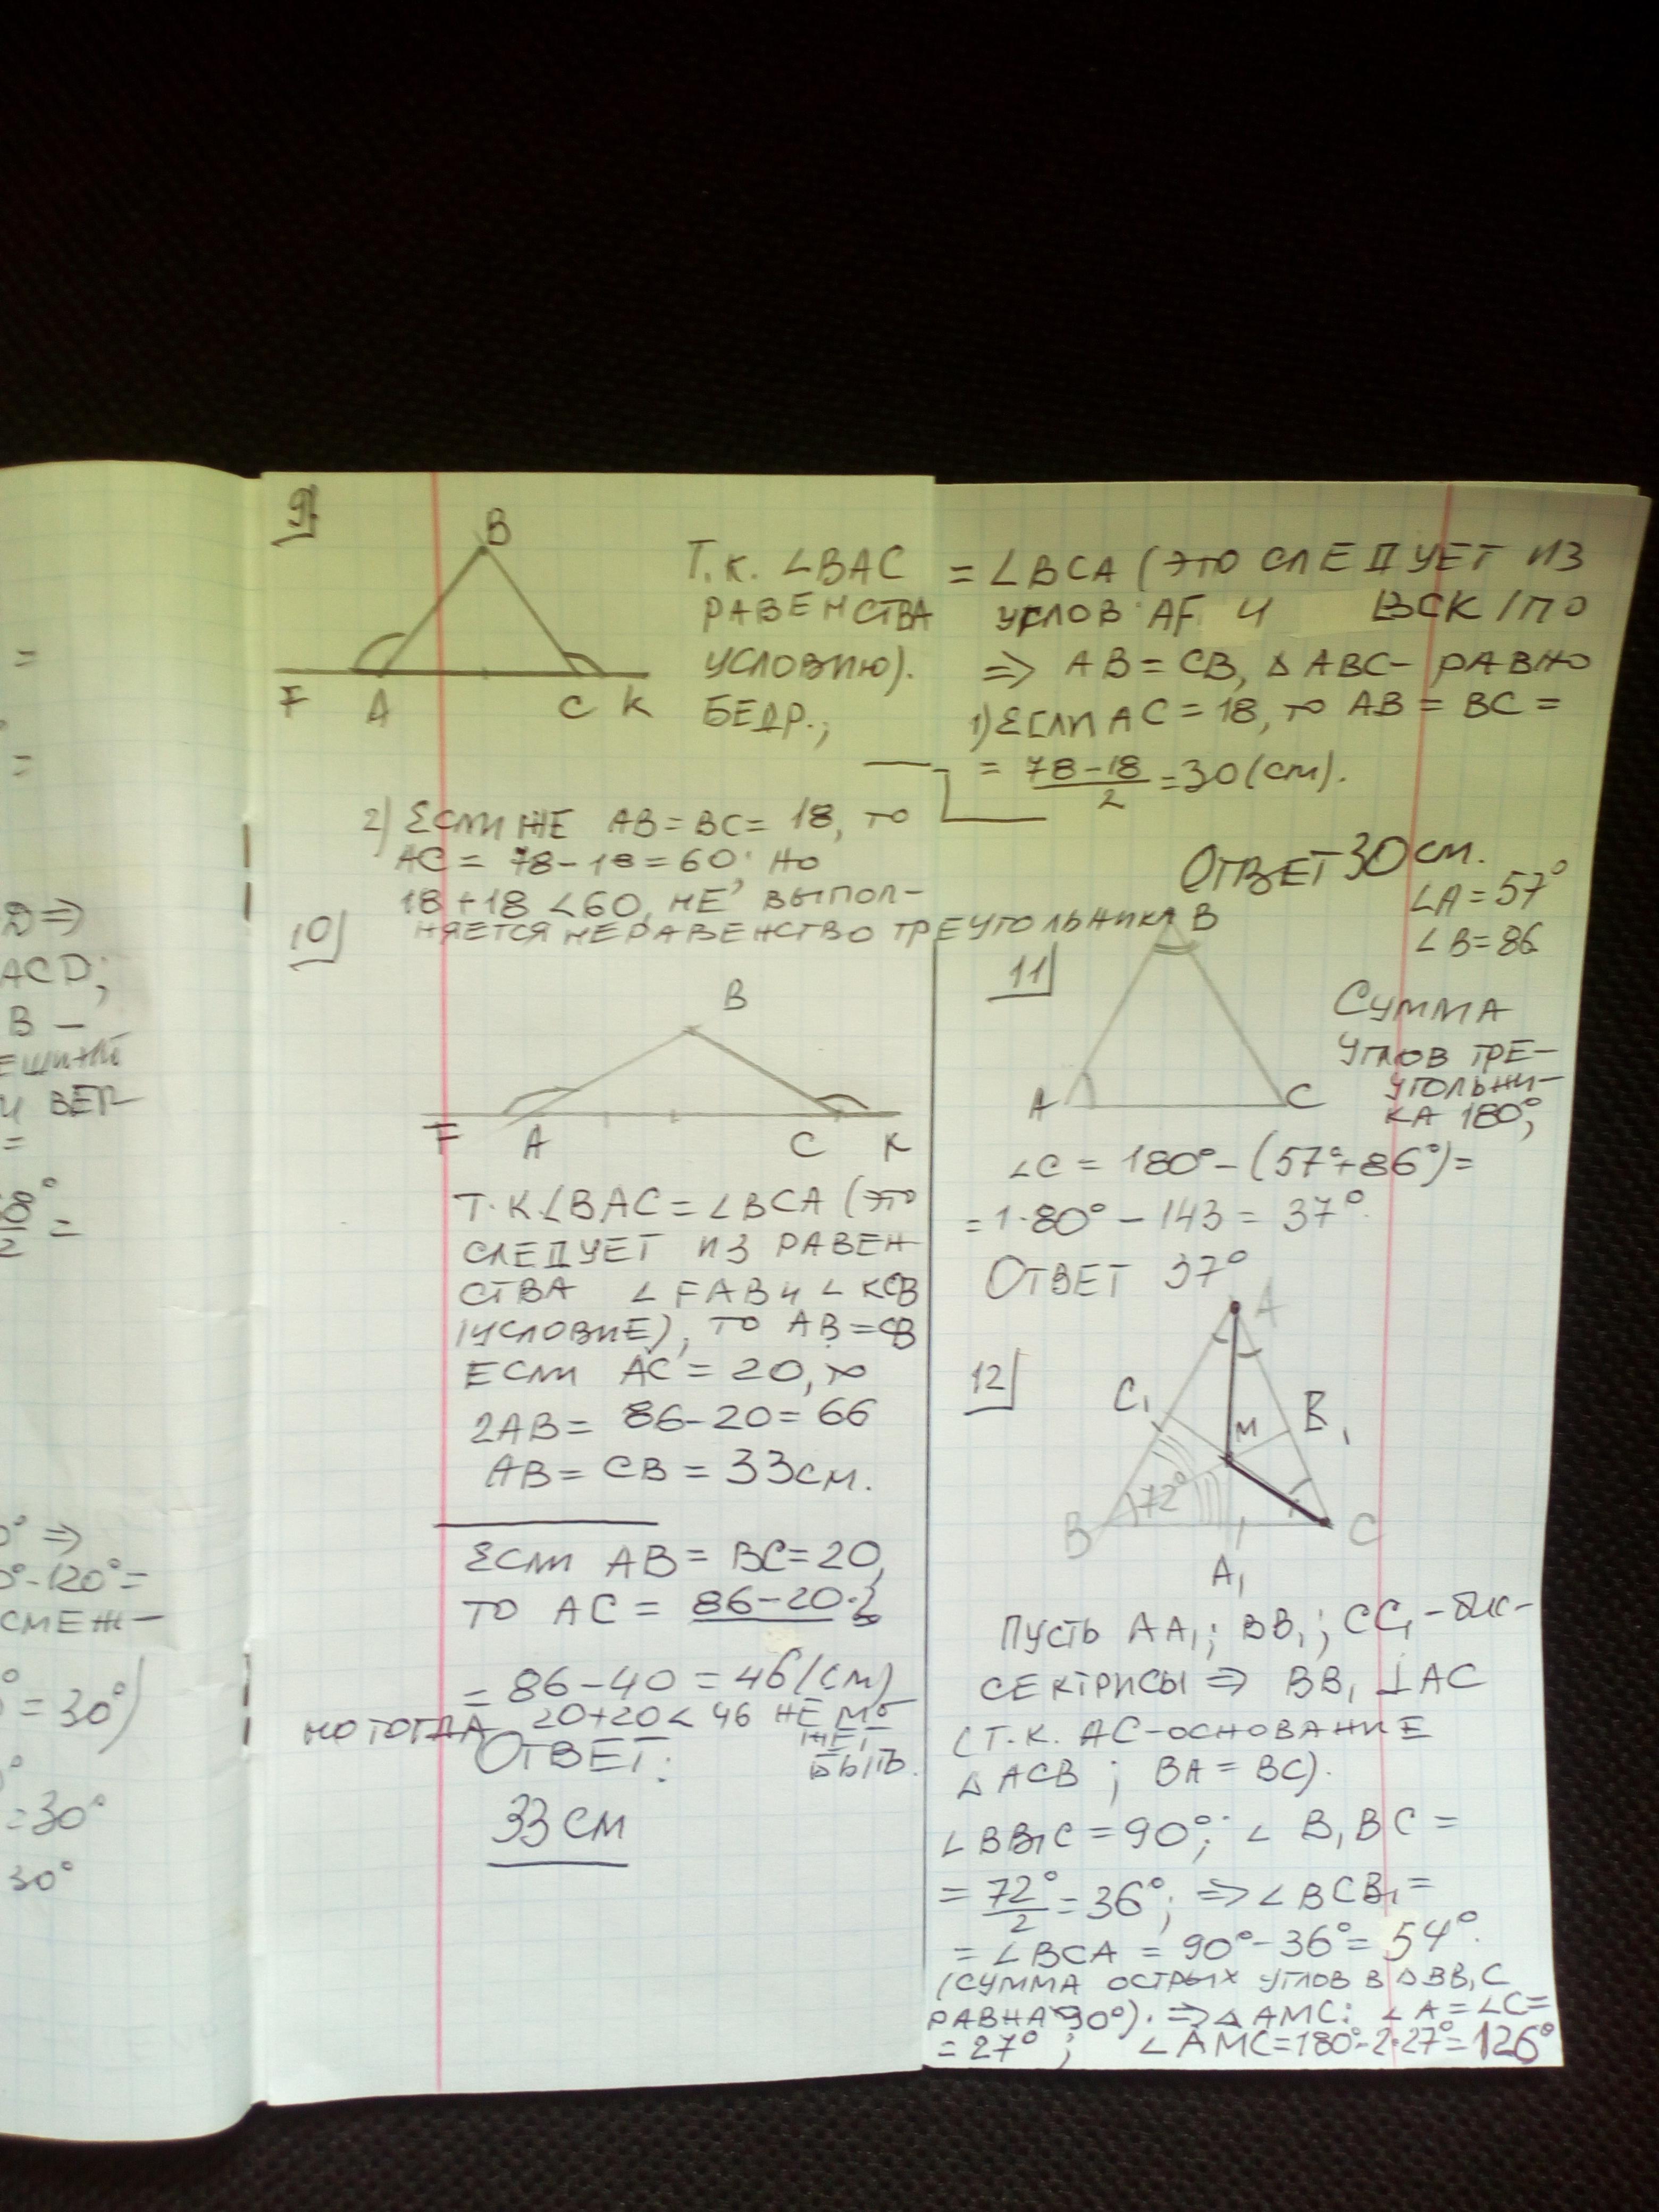 9)
B
F A C K
Т.К. ∠BAC = ∠BCA (ЭТО СЛЕДУЕТ ИЗ
РАВЕНСТВА УГЛОВ AF И BCK (ПО
УСЛОВИЮ). ⇒ AB = CB, △ABC – РАВНО
БЕДР.; 1) ЕСЛИ AC = 18, ТО AB = BC =
= (78-18)/2 = 30 (СМ).
2) ЕСЛИ ЖЕ AB = BC = 18, ТО
AC = 78 - 18 = 60; НО
18 + 18 < 60, НЕ ВЫПОЛ-
НЯЕТСЯ НЕРАВЕНСТВО ТРЕУГОЛЬНИКА
ОТВЕТ 30 СМ.
10)
B
F A C K
Т.К. ∠BAC = ∠BCA (ЭТО
СЛЕДУЕТ ИЗ РАВЕН
СТВА ∠FAB И ∠KCB
(УСЛОВИЕ), ТО AB = CB
ЕСЛИ AC = 20, ТО
2AB = 86 - 20 = 66
AB = CB = 33 СМ.
ЕСЛИ AB = BC = 20,
ТО AC = 86 - 20·2
= 86 - 40 = 46 (СМ)
НО ТОГДА 20 + 20 < 46 НЕ МО
ЖЕТ
БЫТЬ.
ОТВЕТ:
33 СМ
∠A = 57°
∠B = 86
11)
B
A C
СУММА
УГЛОВ ТРЕ-
УГОЛЬНИ-
КА 180°;
∠C = 180° - (57° + 86°) =
= 180° - 143 = 37°.
ОТВЕТ 37°
12)
A
C₁ M B₁
B 72° C
A₁
ПУСТЬ AA₁; BB₁; CC₁ – БИС-
СЕКТРИСЫ ⇒ BB₁ ⊥ AC
(Т.К. AC – ОСНОВАНИЕ
△ACB; BA = BC).
∠BB₁C = 90°; ∠B₁BC =
= 72°/2 = 36°; ⇒ ∠BCB₁ =
= ∠BCA = 90° - 36° = 54°.
(СУММА ОСТРЫХ УГЛОВ В △BB₁C
РАВНА 90°). ⇒ △AMC: ∠A = ∠C =
= 27°; ∠AMC = 180° - 2·27° = 126°
=
=
D ⇒
ACD;
B –
И ВЕР
=
2 =
0° ⇒
0° - 120° =
СМЕЖ-
° = 30°)
= 30°
30°